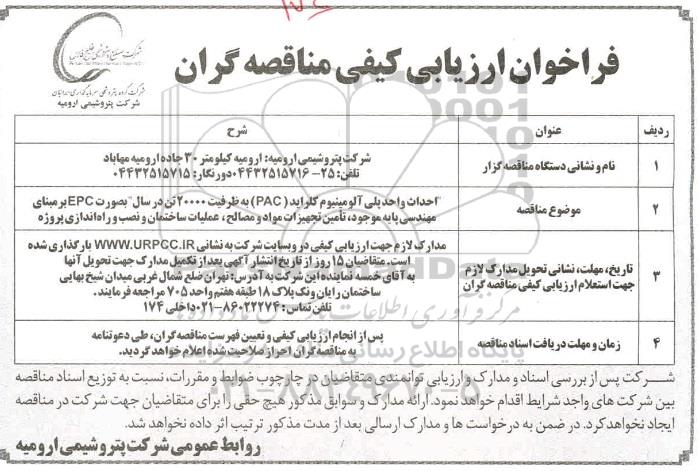 فراخوان ارزیابی کیفی مناقصه گران
شرکت صنایع پتروشیمی خلیج فارس
شرکت گروه پتروشیمی سرمایه گذاری ایرانیان
شرکت پتروشیمی ارومیه
ردیف عنوان شرح
۱ نام و نشانی دستگاه مناقصه گزار
شرکت پتروشیمی ارومیه: ارومیه کیلومتر ۳۰ جاده ارومیه مهاباد
تلفن: ۲۵- ۰۴۴۳۲۵۱۵۷۱۶ دورنگار: ۰۴۴۳۲۵۱۵۷۱۵
۲ موضوع مناقصه
"احداث واحد پلی آلومینیوم کلراید (PAC) به ظرفیت ۲۰۰۰۰ تن در سال" بصورت EPC بر مبنای
مهندسی پایه موجود، تأمین تجهیزات مواد و مصالح، عملیات ساختمان و نصب و راه اندازی پروژه
۳ تاریخ، مهلت، نشانی تحویل مدارک لازم
جهت استعلام ارزیابی کیفی مناقصه گران
مدارک لازم جهت ارزیابی کیفی در وبسایت شرکت به نشانی WWW.URPCC.IR بارگذاری شده
است. متقاضیان ۱۵ روز از تاریخ انتشار آگهی بعد از تکمیل مدارک جهت تحویل آنها
به آقای خمسه نماینده این شرکت به آدرس: تهران ضلع شمال غربی میدان شیخ بهایی
ساختمان رایان ونک پلاک ۱۸ طبقه هفتم واحد ۷۰۵ مراجعه فرمایند.
تلفن تماس: ۸۶۰۲۲۲۷۴-۰۲۱ داخلی ۱۷۴
۴ زمان و مهلت دریافت اسناد مناقصه
پس از انجام ارزیابی کیفی و تعیین فهرست مناقصه گران، طی دعوتنامه
به مناقصه گران احراز صلاحیت شده اعلام خواهد گردید.
شرکت پس از بررسی اسناد و مدارک و ارزیابی توانمندی متقاضیان در چارچوب ضوابط و مقررات، نسبت به توزیع اسناد مناقصه
بین شرکت های واجد شرایط اقدام خواهد نمود. ارائه مدارک و سوابق مذکور هیچ حقی را برای متقاضیان جهت شرکت در مناقصه
ایجاد نخواهد کرد. در ضمن به درخواست ها و مدارک ارسالی بعد از مدت مذکور ترتیب اثر داده نخواهد شد.
روابط عمومی شرکت پتروشیمی ارومیه